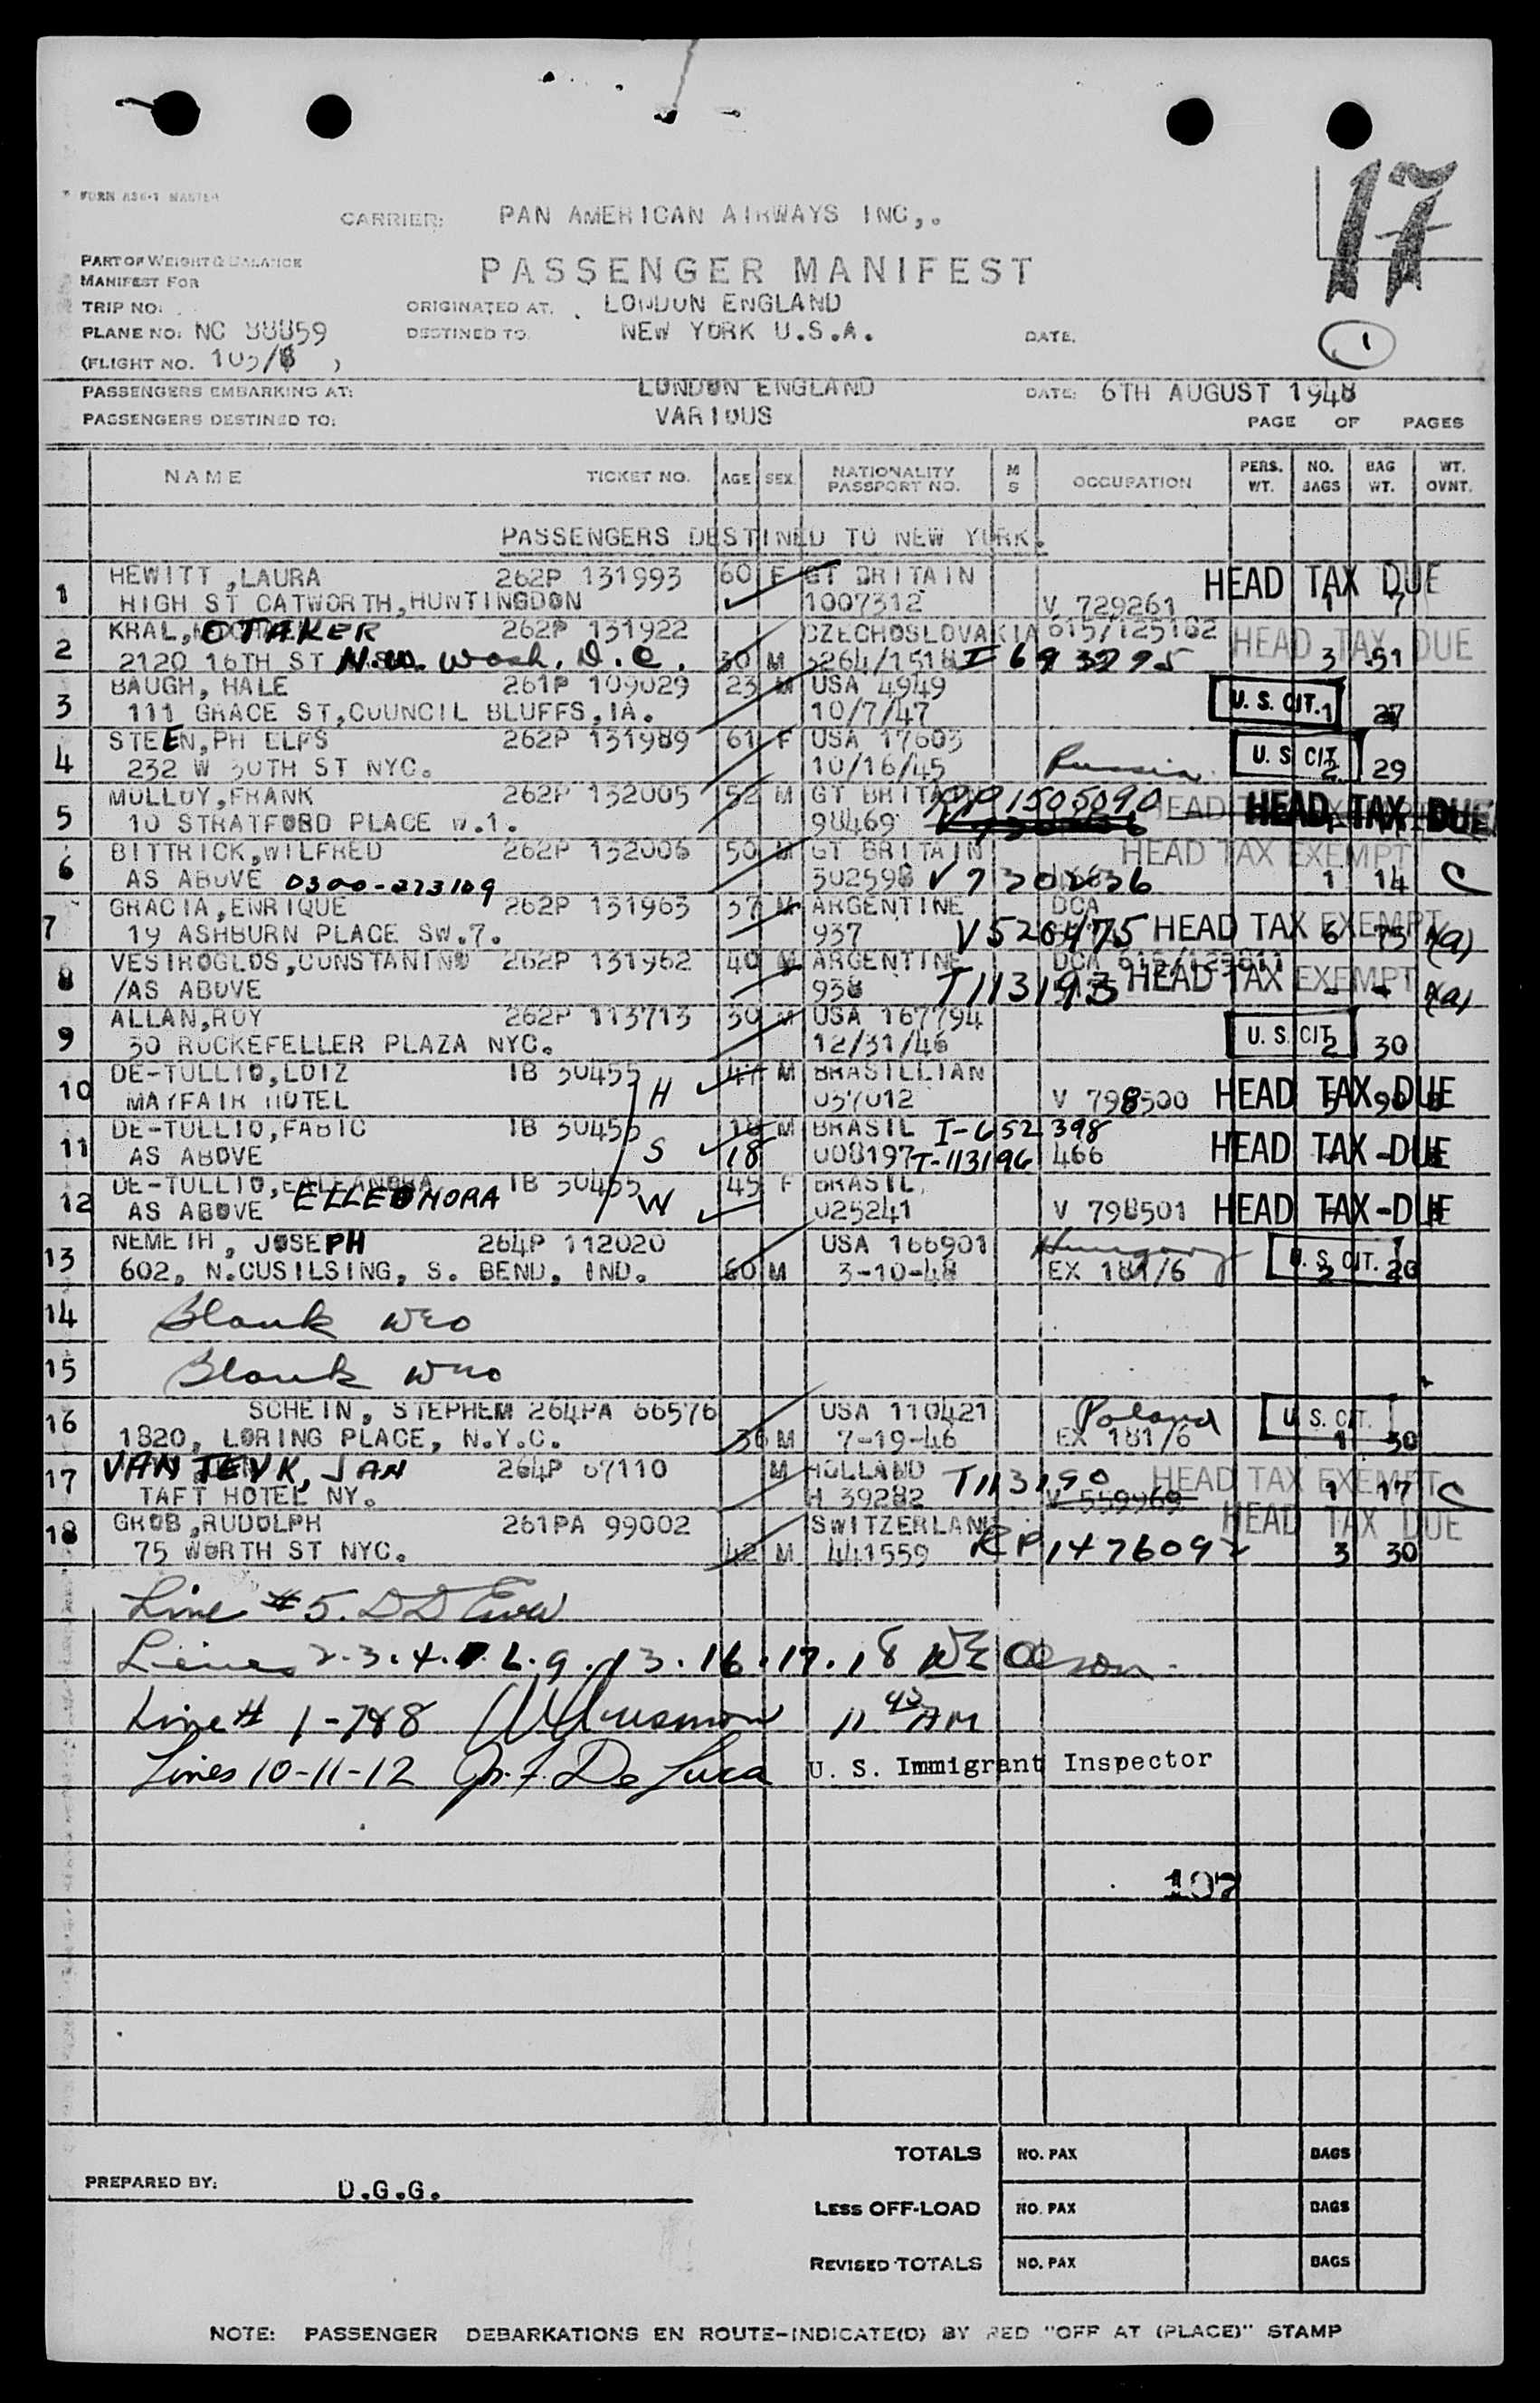 17
CARRIER: PAN AMERICAN AIRWAYS INC,.
PART OF WEIGHT & BALANCE
MANIFEST FOR
PASSENGER MANIFEST
TRIP NO:
ORIGINATED AT. LONDON ENGLAND
PLANE NO: NC 88859
DESTINED TO. NEW YORK U.S.A.
DATE.
1
(FLIGHT NO. 105/ )
PASSENGERS EMBARKING AT: LONDON ENGLAND DATE: 6TH AUGUST 1948
PASSENGERS DESTINED TO: VARIOUS
PAGE OF PAGES
NAME TICKET NO. AGE SEX NATIONALITY PASSPORT NO. M S OCCUPATION PERS. WT. NO. BAGS BAG WT. WT. OVNT.
PASSENGERS DESTINED TO NEW YORK.
1 HEWITT ,LAURA 262P 131993 60 F GT BRITAIN HEAD TAX DUE
HIGH ST CATWORTH,HUNTINGDON 1007312 V 729261 1 7
2 KRAL, OTAKER 262P 131922 CZECHOSLOVAKIA 615/125162 HEAD TAX DUE
2120 16TH ST N.W. Wash. D.C. 30 M 3264/1518 I 693295 3 51
3 BAUGH, HALE 261P 109029 23 M USA 4949 U.S. CIT.
111 GRACE ST,COUNCIL BLUFFS,IA. 10/7/47 1 27
4 STEEN,PH ELPS 262P 131989 61 F USA 17603 U.S. CIT.
232 W 30TH ST NYC. 10/16/45 Russia 2 29
5 MOLLOY,FRANK 262P 132005 52 M GT BRITAIN RP1505090 HEAD TAX DUE
10 STRATFORD PLACE W.1. 98469
6 BITTRICK,WILFRED 262P 132006 50 M GT BRITAIN HEAD TAX EXEMPT
AS ABOVE 0300-273109 302598 V 730236 1 14 C
7 GRACIA,ENRIQUE 262P 131963 37 M ARGENTINE DCA
19 ASHBURN PLACE SW.7. 937 V526475 HEAD TAX EXEMPT 6 75 (a)
8 VESTROGLOS,CONSTANTINO 262P 131962 40 M ARGENTINE DCA
/AS ABOVE 938 T113193 HEAD TAX EXEMPT - - (a)
9 ALLAN,ROY 262P 113713 30 M USA 167794 U.S. CIT.
30 ROCKEFELLER PLAZA NYC. 12/31/46 2 30
10 DE-TULLIO,LOIZ IB 30455 47 M BRASILLIAN
MAYFAIR HOTEL H 037012 V 798500 HEAD TAX DUE
11 DE-TULLIO,FABIO IB 30455 18 M BRASIL I-652398
AS ABOVE S 18 008197 T-113196 466 HEAD TAX DUE
12 DE-TULLIO, IB 30455 45 F BRASIL
AS ABOVE ELLEONORA W 025241 V 798501 HEAD TAX DUE
13 NEMETH, JOSEPH 264P 112020 USA 166901 Hungary U.S. CIT.
602, N.CUSILSING, S. BEND, IND. 60 M 3-10-48 EX 181/6 2 20
14 Blank WEO
15 Blank WEO
16 SCHEIN, STEPHEM 264PA 66576 USA 110421 Poland U.S. CIT.
1820, LORING PLACE, N.Y.C. 36 M 7-19-46 EX 181/6 1 30
17 VAN TEYK, JAN 264P 67110 M HOLLAND T113190 HEAD TAX EXEMPT
TAFT HOTEL NY. H 39282 V 559969 1 17 C
18 GROB,RUDOLPH 261PA 99002 SWITZERLAND HEAD TAX DUE
75 WORTH ST NYC. 42 M 441559 RP1476092 3 30
Line #5.
Lines 2.3.4. 6.9.13.16.17.18
Line # 1-7&8 11 45 AM
Lines 10-11-12 De Luca U. S. Immigrant Inspector
107
TOTALS NO. PAX BAGS
PREPARED BY: D.G.G.
LESS OFF-LOAD NO. PAX BAGS
REVISED TOTALS NO. PAX BAGS
NOTE: PASSENGER DEBARKATIONS EN ROUTE-INDICATE(D) BY RED "OFF AT (PLACE)" STAMP